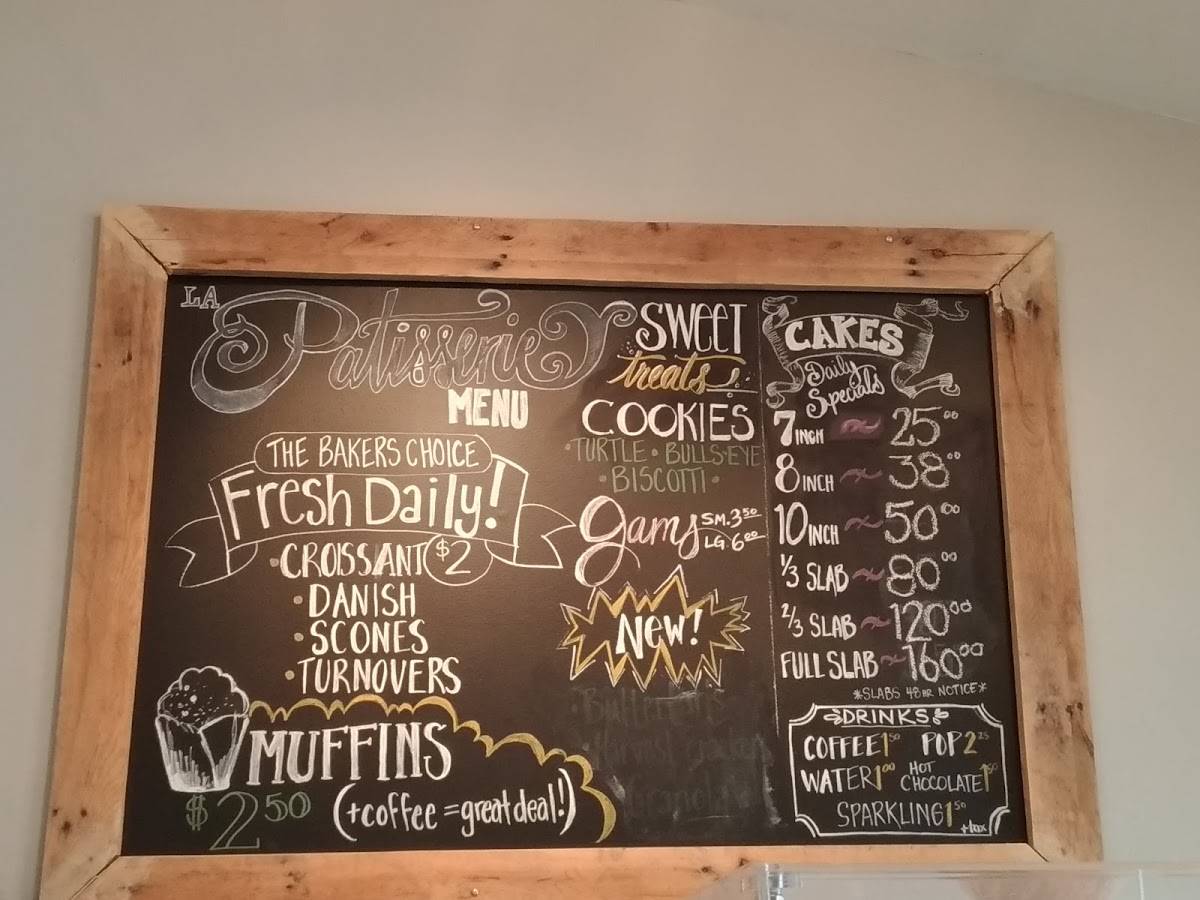 LA
Patisserie
MENU
THE BAKERS CHOICE
Fresh Daily!
• CROISSANT $2
• DANISH
• SCONES
• TURNOVERS
MUFFINS
$2.50
(+coffee = great deal!)
SWEET
treats
COOKIES
• TURTLE • BULLS-EYE
• BISCOTTI •
Jams SM. 3.50
LG. 6.00
New!
CAKES
Daily
Specials
7 INCH ~ 25.00
8 INCH ~ 38.00
10 INCH ~ 50.00
1/3 SLAB ~ 80.00
2/3 SLAB ~ 120.00
FULL SLAB ~ 160.00
*SLABS 48 HR NOTICE*
DRINKS
COFFEE 1.50 POP 2.25
WATER 1.00 HOT CHOCOLATE 1.50
SPARKLING 1.50
+tax